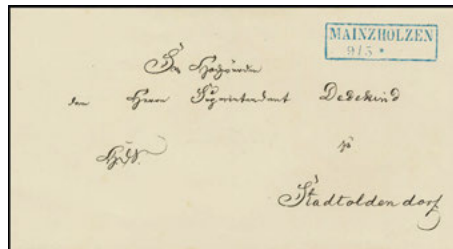 MAINZHOLZEN
9/5 *
Hochwürden
dem Herrn Superintendent Dedekind
zu
Stadtoldendorf